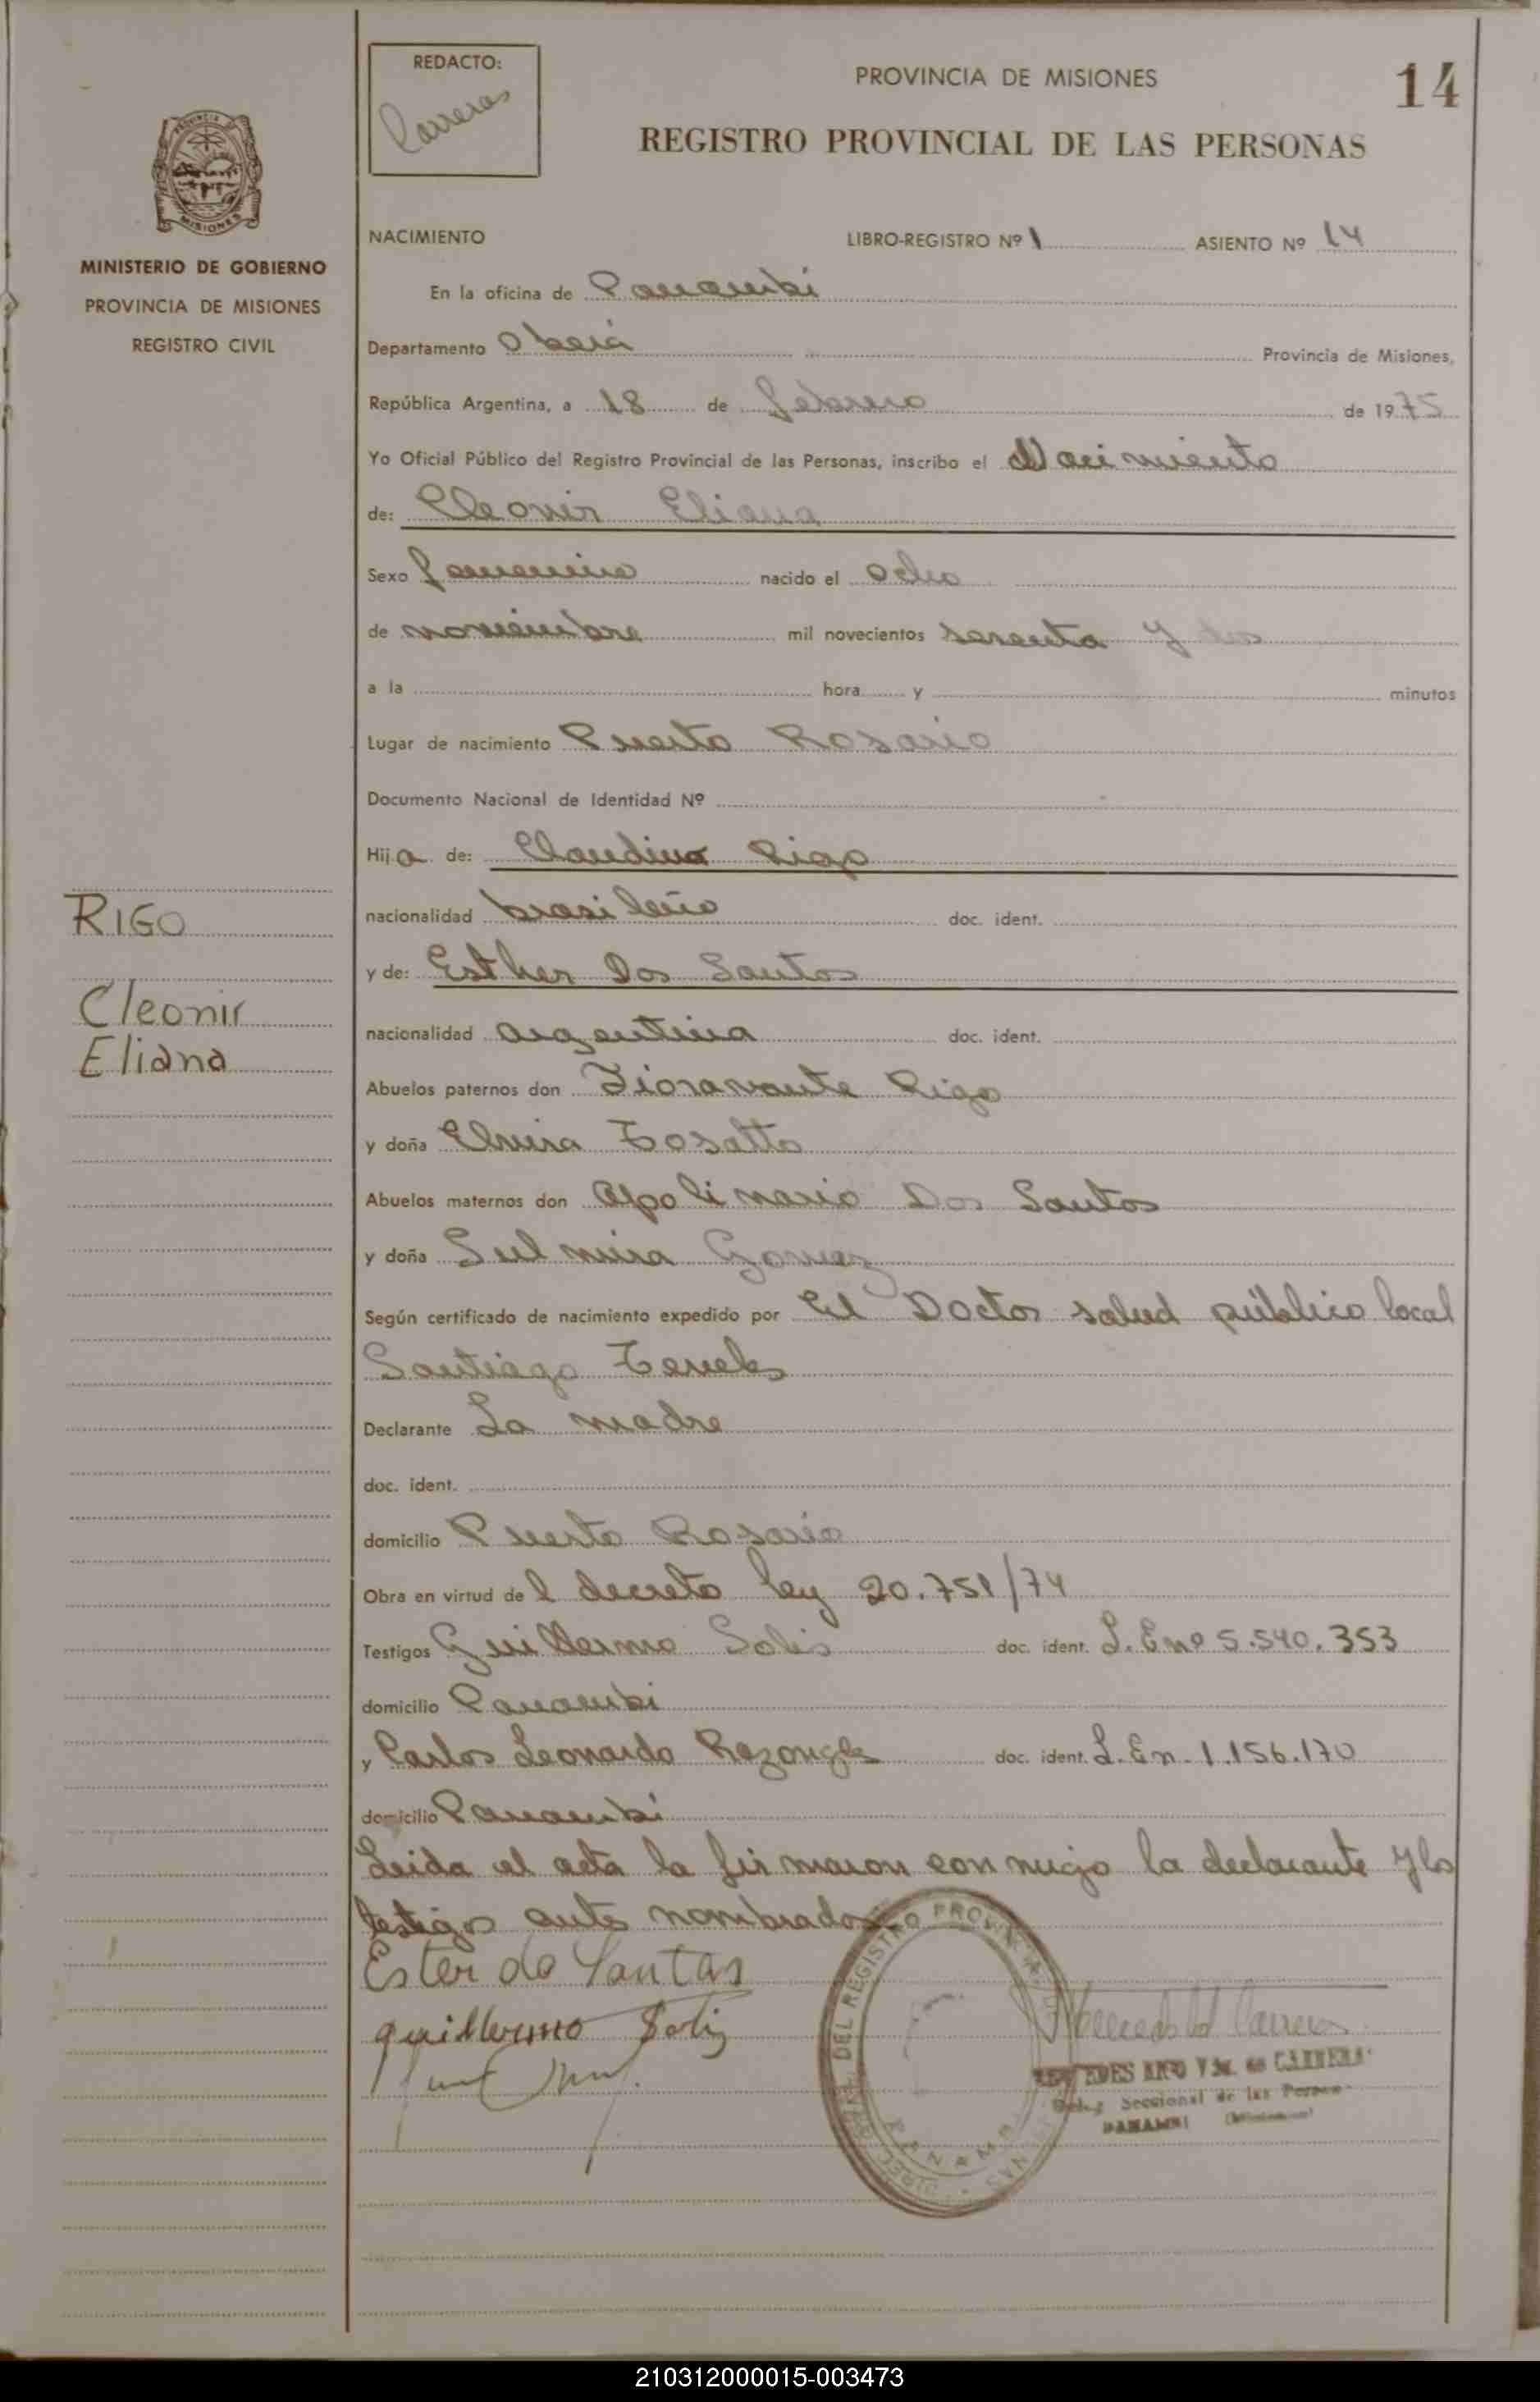 REDACTO:
Carreras
PROVINCIA DE MISIONES
14
REGISTRO PROVINCIAL DE LAS PERSONAS
MISIONES
MINISTERIO DE GOBIERNO
PROVINCIA DE MISIONES
REGISTRO CIVIL
NACIMIENTO LIBRO-REGISTRO Nº 1 ASIENTO Nº 14
En la oficina de Panambi
Departamento Oberá Provincia de Misiones,
República Argentina, a 18 de febrero de 1975
Yo Oficial Público del Registro Provincial de las Personas, inscribo el Nacimiento
de: Cleonir Eliana
Sexo femenino nacido el ocho
de noviembre mil novecientos sesenta y dos
a la hora y minutos
Lugar de nacimiento Puerto Rosario
Documento Nacional de Identidad Nº
Hija de: Claudino Rigo
nacionalidad brasileño doc. ident.
y de: Esther Dos Santos
nacionalidad argentina doc. ident.
Abuelos paternos don Fioravante Rigo
y doña Elvira Tosatto
Abuelos maternos don Apolinario Dos Santos
y doña Sulmira Gomez
Según certificado de nacimiento expedido por El Doctor salud público local
Santiago
Declarante La madre
doc. ident.
domicilio Puerto Rosario
Obra en virtud del decreto ley 20.751/74
Testigos Guillermo Solis doc. ident. L. E nº 5.540.353
domicilio Panambi
y Carlos Leonardo doc. ident. L. E n. 1.156.170
domicilio Panambi
Leida el acta la firmaron conmigo la declarante y los
testigos antes nombrados
Ester do Santas
guillermo Solis
RIGO
Cleonir
Eliana
DEL REGISTRO PROVINCIAL
PANAMBI
Seccional de las Personas
PANAMBI (Misiones)
210312000015-003473